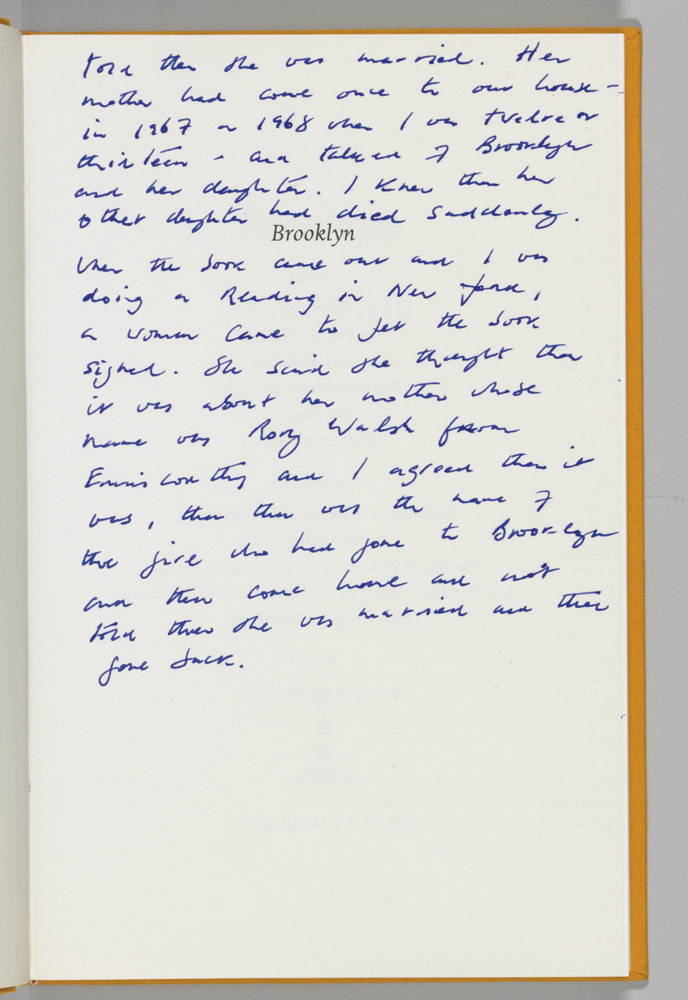 told them she was married. Her
mother had come once to our house –
in 1967 or 1968 when I was twelve or
thirteen – and talked of Brooklyn
and her daughter. I knew then her
other daughter had died suddenly.
Brooklyn
When the book came out and I was
doing a Reading in New York,
a woman came to get the book
signed. She said she thought that
it was about her mother whose
name was Rory Walsh from
Enniscorthy and I agreed that it
was, that that was the name of
the girl who had gone to Brooklyn
and then come home and not
told them she was married and then
gone back.